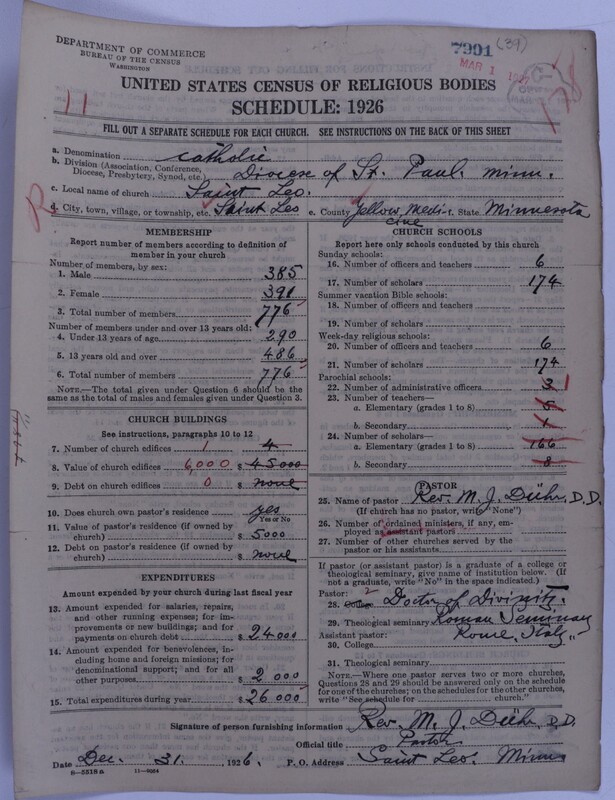 DEPARTMENT OF COMMERCE
BUREAU OF THE CENSUS
WASHINGTON
7991 (39)
MAR 1
UNITED STATES CENSUS OF RELIGIOUS BODIES
SCHEDULE: 1926
11
FILL OUT A SEPARATE SCHEDULE FOR EACH CHURCH. SEE INSTRUCTIONS ON THE BACK OF THIS SHEET
a. Denomination catholic
b. Division (Association, Conference, Diocese, Presbytery, Synod, etc.) Diocese of St. Paul. minn.
c. Local name of church Saint Leo.
d. City, town, village, or township, etc. Saint Leo e. County Yellow Medi- f. State Minnesota
cine
MEMBERSHIP
Report number of members according to definition of
member in your church
Number of members, by sex:
1. Male 385
2. Female 391
3. Total number of members 776
Number of members under and over 13 years old:
4. Under 13 years of age 290
5. 13 years old and over 486
6. Total number of members 776
NOTE.—The total given under Question 6 should be
same as the total of males and females given under Question 3.
CHURCH BUILDINGS
See instructions, paragraphs 10 to 12
7. Number of church edifices 1 4
8. Value of church edifices 6,000 $ 45000
9. Debt on church edifices 0 $ none
10. Does church own pastor's residence? yes
Yes or No
11. Value of pastor's residence (if owned by
church) $ 5000
12. Debt on pastor's residence (if owned by
church) $ none
EXPENDITURES
Amount expended by your church during last fiscal year
13. Amount expended for salaries, repairs,
and other running expenses; for im-
provements or new buildings; and for
payments on church debt $ 24000
14. Amount expended for benevolences, in-
cluding home and foreign missions; for
denominational support; and for all
other purposes $ 2 000
15. Total expenditures during year $ 26 000
CHURCH SCHOOLS
Report here only schools conducted by this church
Sunday schools:
16. Number of officers and teachers 6
17. Number of scholars 174
Summer vacation Bible schools:
18. Number of officers and teachers
19. Number of scholars
Week-day religious schools:
20. Number of officers and teachers 6
21. Number of scholars 174
Parochial schools:
22. Number of administrative officers 3
23. Number of teachers—
a. Elementary (grades 1 to 8) 5
b. Secondary 1
24. Number of scholars—
a. Elementary (grades 1 to 8) 166
b. Secondary 8
PASTOR
25. Name of pastor Rev. M. J. Dühr, D.D.
(If church has no pastor, write "None")
26. Number of ordained ministers, if any, em-
ployed as assistant pastors
27. Number of other churches served by the
pastor or his assistants
If pastor (or assistant pastor) is a graduate of a college or
theological seminary, give name of institution below. (If
not a graduate, write "No" in the space indicated.)
Pastor:
28. Doctor of Divinity.
29. Theological seminary Roman Seminary
Assistant pastor: Rome, Italy
30. College
31. Theological seminary
NOTE.—Where one pastor serves two or more churches,
Questions 28 and 29 should be answered only on the schedule
for one of the churches; on the schedules for the other churches,
write "See schedule for church."
Signature of person furnishing information Rev. M. J. Dühr, D.D.
Official title Pastor
Date Dec. 31. , 1926. P. O. Address Saint Leo. Minn
8-5518a 11-9064